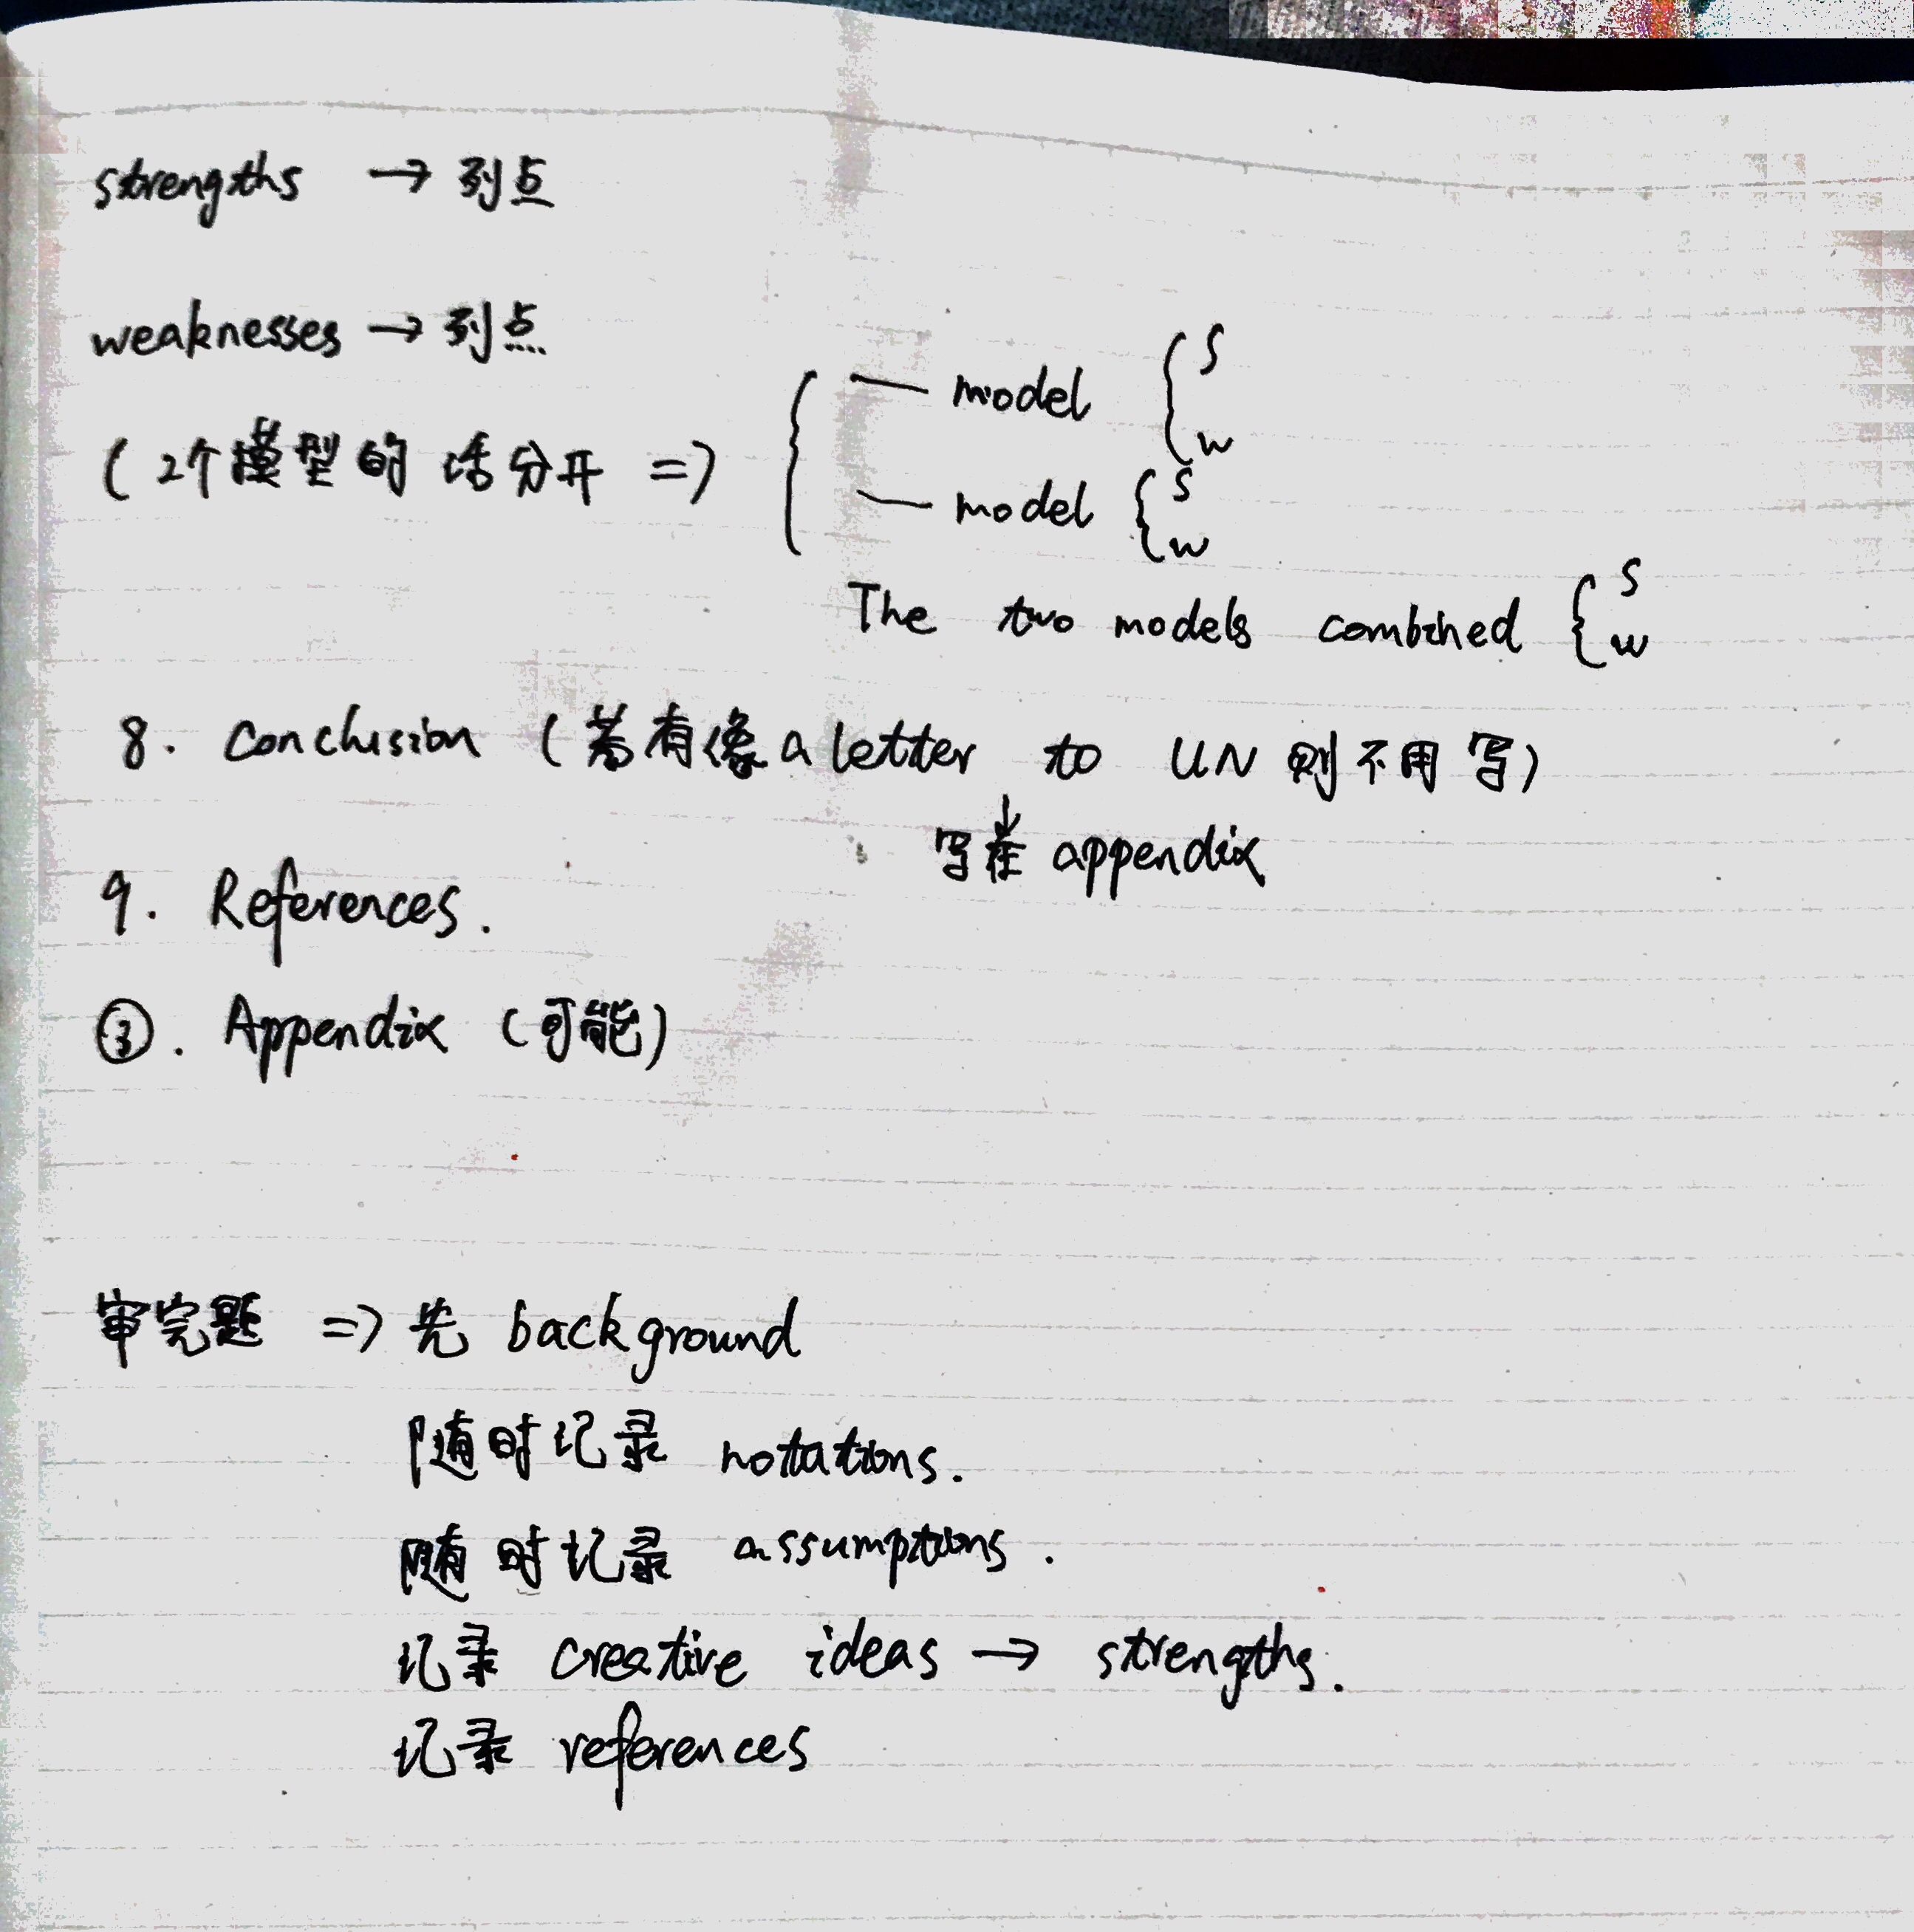 strengths → 列点
weaknesses → 列点
(2个模型的话分开 =>)
{ — model { S w
— model { S w
The two models combined { S w
8. Conclusion (若有像 a letter to UN 则不用写)
↓
写在 appendix
9. References.
③. Appendix (可能)
审完题 => 先 background
随时记录 notations.
随时记录 assumptions.
记录 creative ideas → strengths.
记录 references